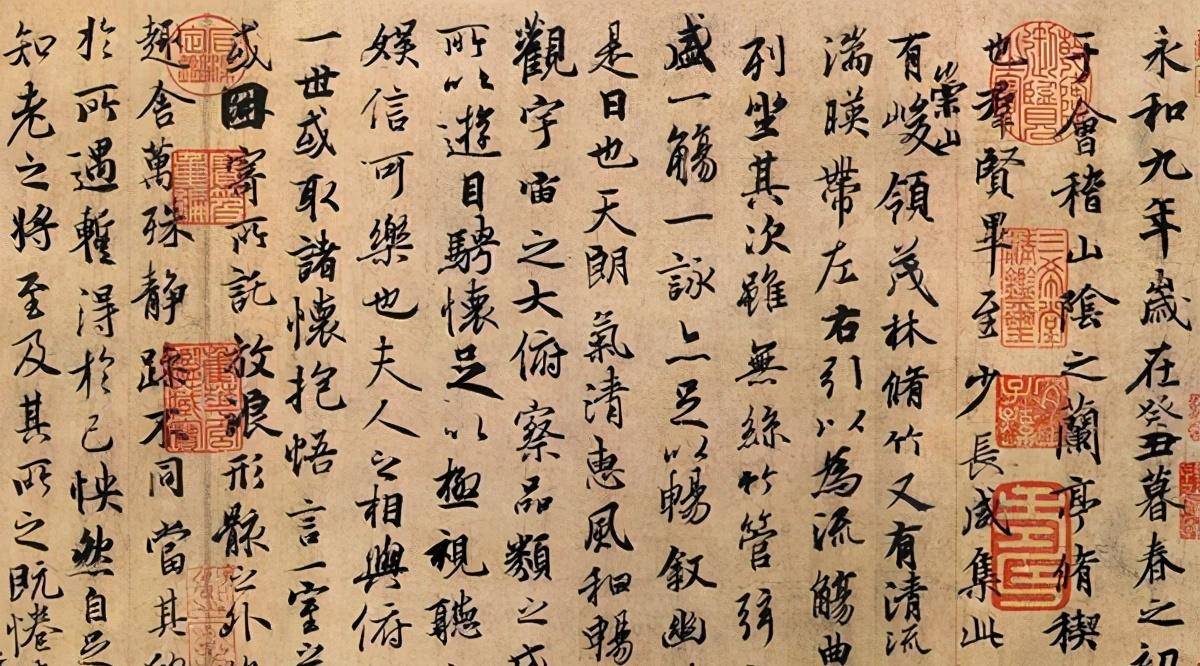 永和九年歲在癸丑暮春之初
于會稽山陰之蘭亭脩稧
也羣賢畢至少長咸集此
有崇山峻領茂林脩竹又有清流
湍暎帶左右引以為流觴曲
列坐其次雖無絲竹管弦
盛一觴一詠亦足以暢敘幽
是日也天朗氣清惠風和暢
觀宇宙之大俯察品類之盛
所以遊目騁懷足以極視聽
娛信可樂也夫人之相與俯
一世或取諸懷抱悟言一室之
或因寄所託放浪形骸之外
趣舍萬殊静躁不同當其
於所遇暫得於己怏然自足
知老之將至及其所之既惓